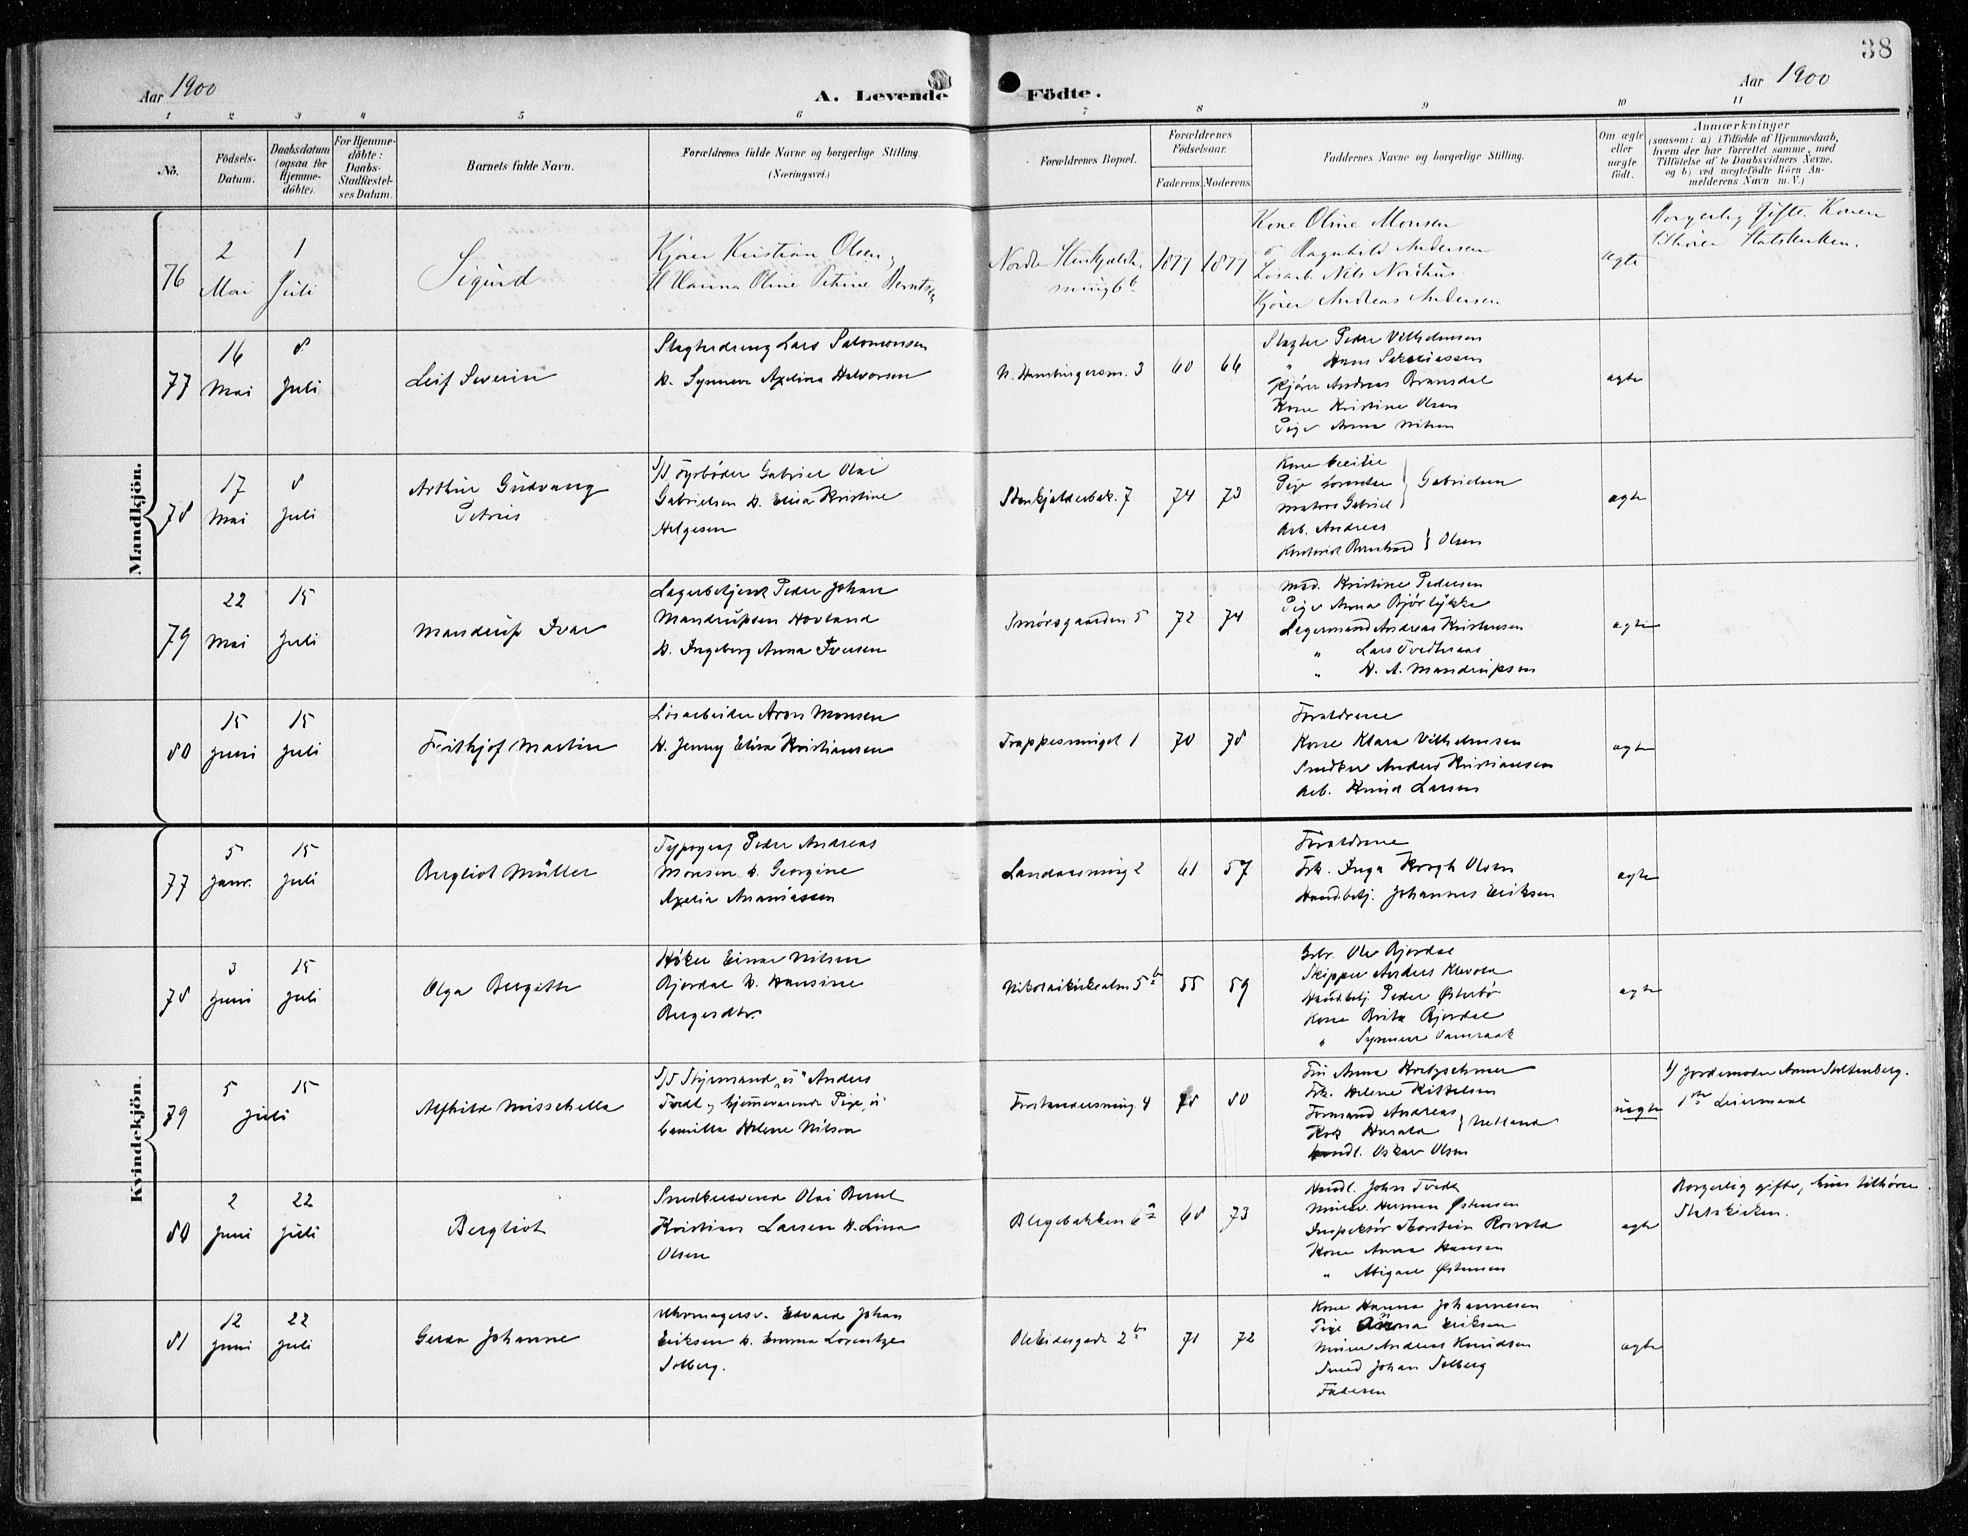 38
Aar 1900
A. Levende Födte.
Aar 1900
1 2 3 4 5 6 7 8 9 10 11
No.
Födsels-Datum.
Daabsdatum (ogsaa for Hjemmedöbte).
For Hjemmedöbte: Daabs-Stadfæstelses Datum.
Barnets fulde Navn.
Forældrenes fulde Navne og borgerlige Stilling.
(Næringsvei.)
Forældrenes Bopæl.
Forældrenes Födselsaar.
Faderens. Moderens.
Faddernes Navne og borgerlige Stilling.
Om ægte eller uægte födt.
Anmærkninger
(saasom: a) i Tilfælde af Hjemmedaab,
hvem der har forrettet samme, med
Tilföielse af to Daabsvidners Navne.
og b) ved uægtefödte Börn Anmelderens Navn m. V.)
Mandkjön.
76
2 Mai
1 Juli
Sigurd
Kjører Kristian Olsen
H Hanna Oline Petrine Berntsen
1877 1877
Kone Oline Monsen
Ragnhild Andersen
Løsarb. Nils Nordhus
Kjører Andreas Andersen
ægte
Borgerlig Gifte. Konen
tilhører Statskirken.
77
16 Mai
8 Juli
Leif Severin
Slagterdreng Lars Salomonsen
H. Synneve Axelina Halvorsen
N. Hamburgersm. 3
60 66
Slagter Peder Vilhelmsen
Kjører Andreas Bransdal
Kone Kristine Olsen
Pige Anna Nilsen
ægte
78
17 Mai
8 Juli
Arthur Gudvang
Petrus
S/S Fyrbøder Gabriel Olai
Gabrielsen H. Elisa Kristine
Helgesen
Stenkjelderbak. 7
74 73
Kone Cecilie
Matros Gabriel } Gabrielsen
Arb. Andreas
Bernhard } Olsen
ægte
79
22 Mai
15 Juli
Mandrup Ivar
Lagerbetjent Peder Johan
Mandrupsen Hovland
H. Ingeborg Anna Iversen
Smørsgaarden 5
72 74
Mad. Kristine Pedersen
Pige Anna Bjørlykke
Lagermand Andreas Kristensen
" Lars Tvedteraas
" H. A. Mandrupsen
ægte
80
15 Juni
15 Juli
Frithjof Martin
Løsarbeider Aron Monsen
H. Jenny Elisa Kristiansen
Trappesmuget 1
70 78
Forældrene
Kone Klara Vilhelmsen
Snedker Anders Kristiansen
Arb. Knud Larsen
ægte
Kvindekjön.
77
5 Janr.
15 Juli
Bergliot Müller
Typograf Peder Andreas
Monsen H. Georgine
Axelia Ananiassen
Landaassmug 2
61 57
Forældrene
Frk. Inga Krogh Olsen
Handlsbetj. Johannes Eriksen
ægte
78
3 Juni
15 Juli
Olga Bergitte
Høker Einar Nilsen
Bjordal H. Hansine
Bergesdtr.
Nikolaikirkealm 5 b
55 59
Gbr. Ole Bjordal
Skipper Anders Klevola
Handlsbetj. Peder Østerbø
Kone Brita Bjordal
" Synneve
ægte
79
5 Juli
15 Juli
Alfhilde Missehella
S/S Styrmand, u" Anders
Tvedt og hjemmeværende Pige, u"
Camilla Helene Nilsen
Forstandersmug 4
78 80
Fru Anna Kretzschmer
Frk. Helene Kittelsen
Formand Andreas
Kok Harald } Netland
Handl. Oskar Olsen
uægte
b) Jordemoder Anna Stoltenberg.
1ste Leiermaal
80
2 Juni
22 Juli
Bergliot
Snedkersvend Olai Bernt
Kristian Larsen H. Lina
Olsen
Blegebakken 6 a
68 73
Handl. John Tvedt
Murer Herman Østensen
Inspektør Thorstein Rosvold
Kone Anna Hansen
" Abigael Østensen
ægte
Borgerlig gifte, hun tilhører
Statskirken.
81
12 Juni
22 Juli
Gerda Johanne
Uhrmagersv. Edvard Johan
Eriksen H. Emma Lorentze
Solberg.
Ole Irgensgade 2 b
71 72
Kone Hanna Johannesen
Pige Anna Eriksen
Murer Andreas Knudsen
Smed Johan Solberg
Faderen
ægte